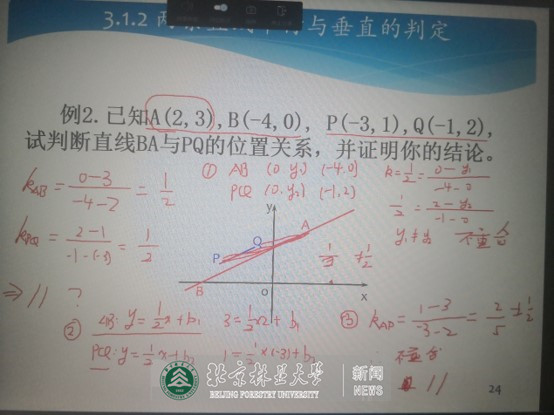 3.1.2 两条直线平行与垂直的判定
例2.已知A(2,3),B(-4,0), P(-3,1),Q(-1,2),
试判断直线BA与PQ的位置关系，并证明你的结论。
k_AB = (0-3)/(-4-2) = 1/2
① AB (0, y₁) (-4,0)
PQ (0, y₂) (-1,2)
k=1/2=(0-y₁)/(-4-0)
1/2=(2-y₂)/(-1-0)
y₁≠y₂ 不重合
k_PQ = (2-1)/(-1-(-3)) = 1/2
⇒ // ?
y
A
Q
P
B
O
x
≠1/2
② AB: y=1/2x+b₁ 3=1/2×2+b₁
PQ: y=1/2x+b₂ 1=1/2×(-3)+b₂
③ k_AP=(1-3)/(-3-2)=2/5≠1/2
不重合
//
北京林业大学
BEIJING FORESTRY UNIVERSITY
新闻
NEWS
24